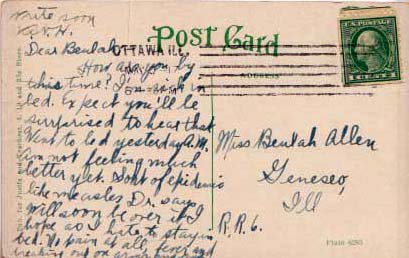 write soon
Kat. H.
Post Card
Dear Beulah
OTTAWA ILL.
How are you by
this time? I'm sick in
bed. Expect you'll be
surprised to hear that
Went to bed yesterday A.M.
am not feeling much
better yet. Sort of epidemic
like measles Dr. says
Will soon be over it I
hope as I hate to stay in
bed. No pain at all, fever and
breaking out on
ADDRESS
Miss Beulah Allen
Geneseo,
Ill
R.R. 6.